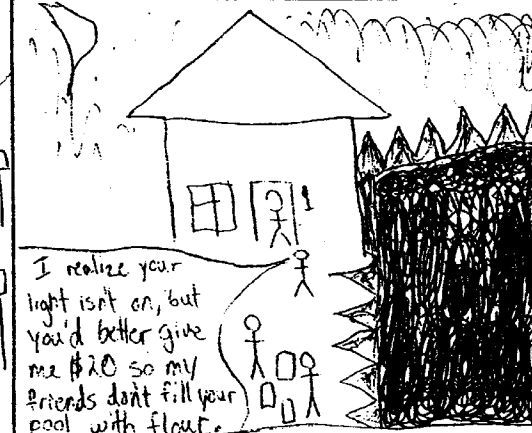 I realize your
light isn't on, but
you'd better give
me $20 so my
friends don't fill your
pool with flour.